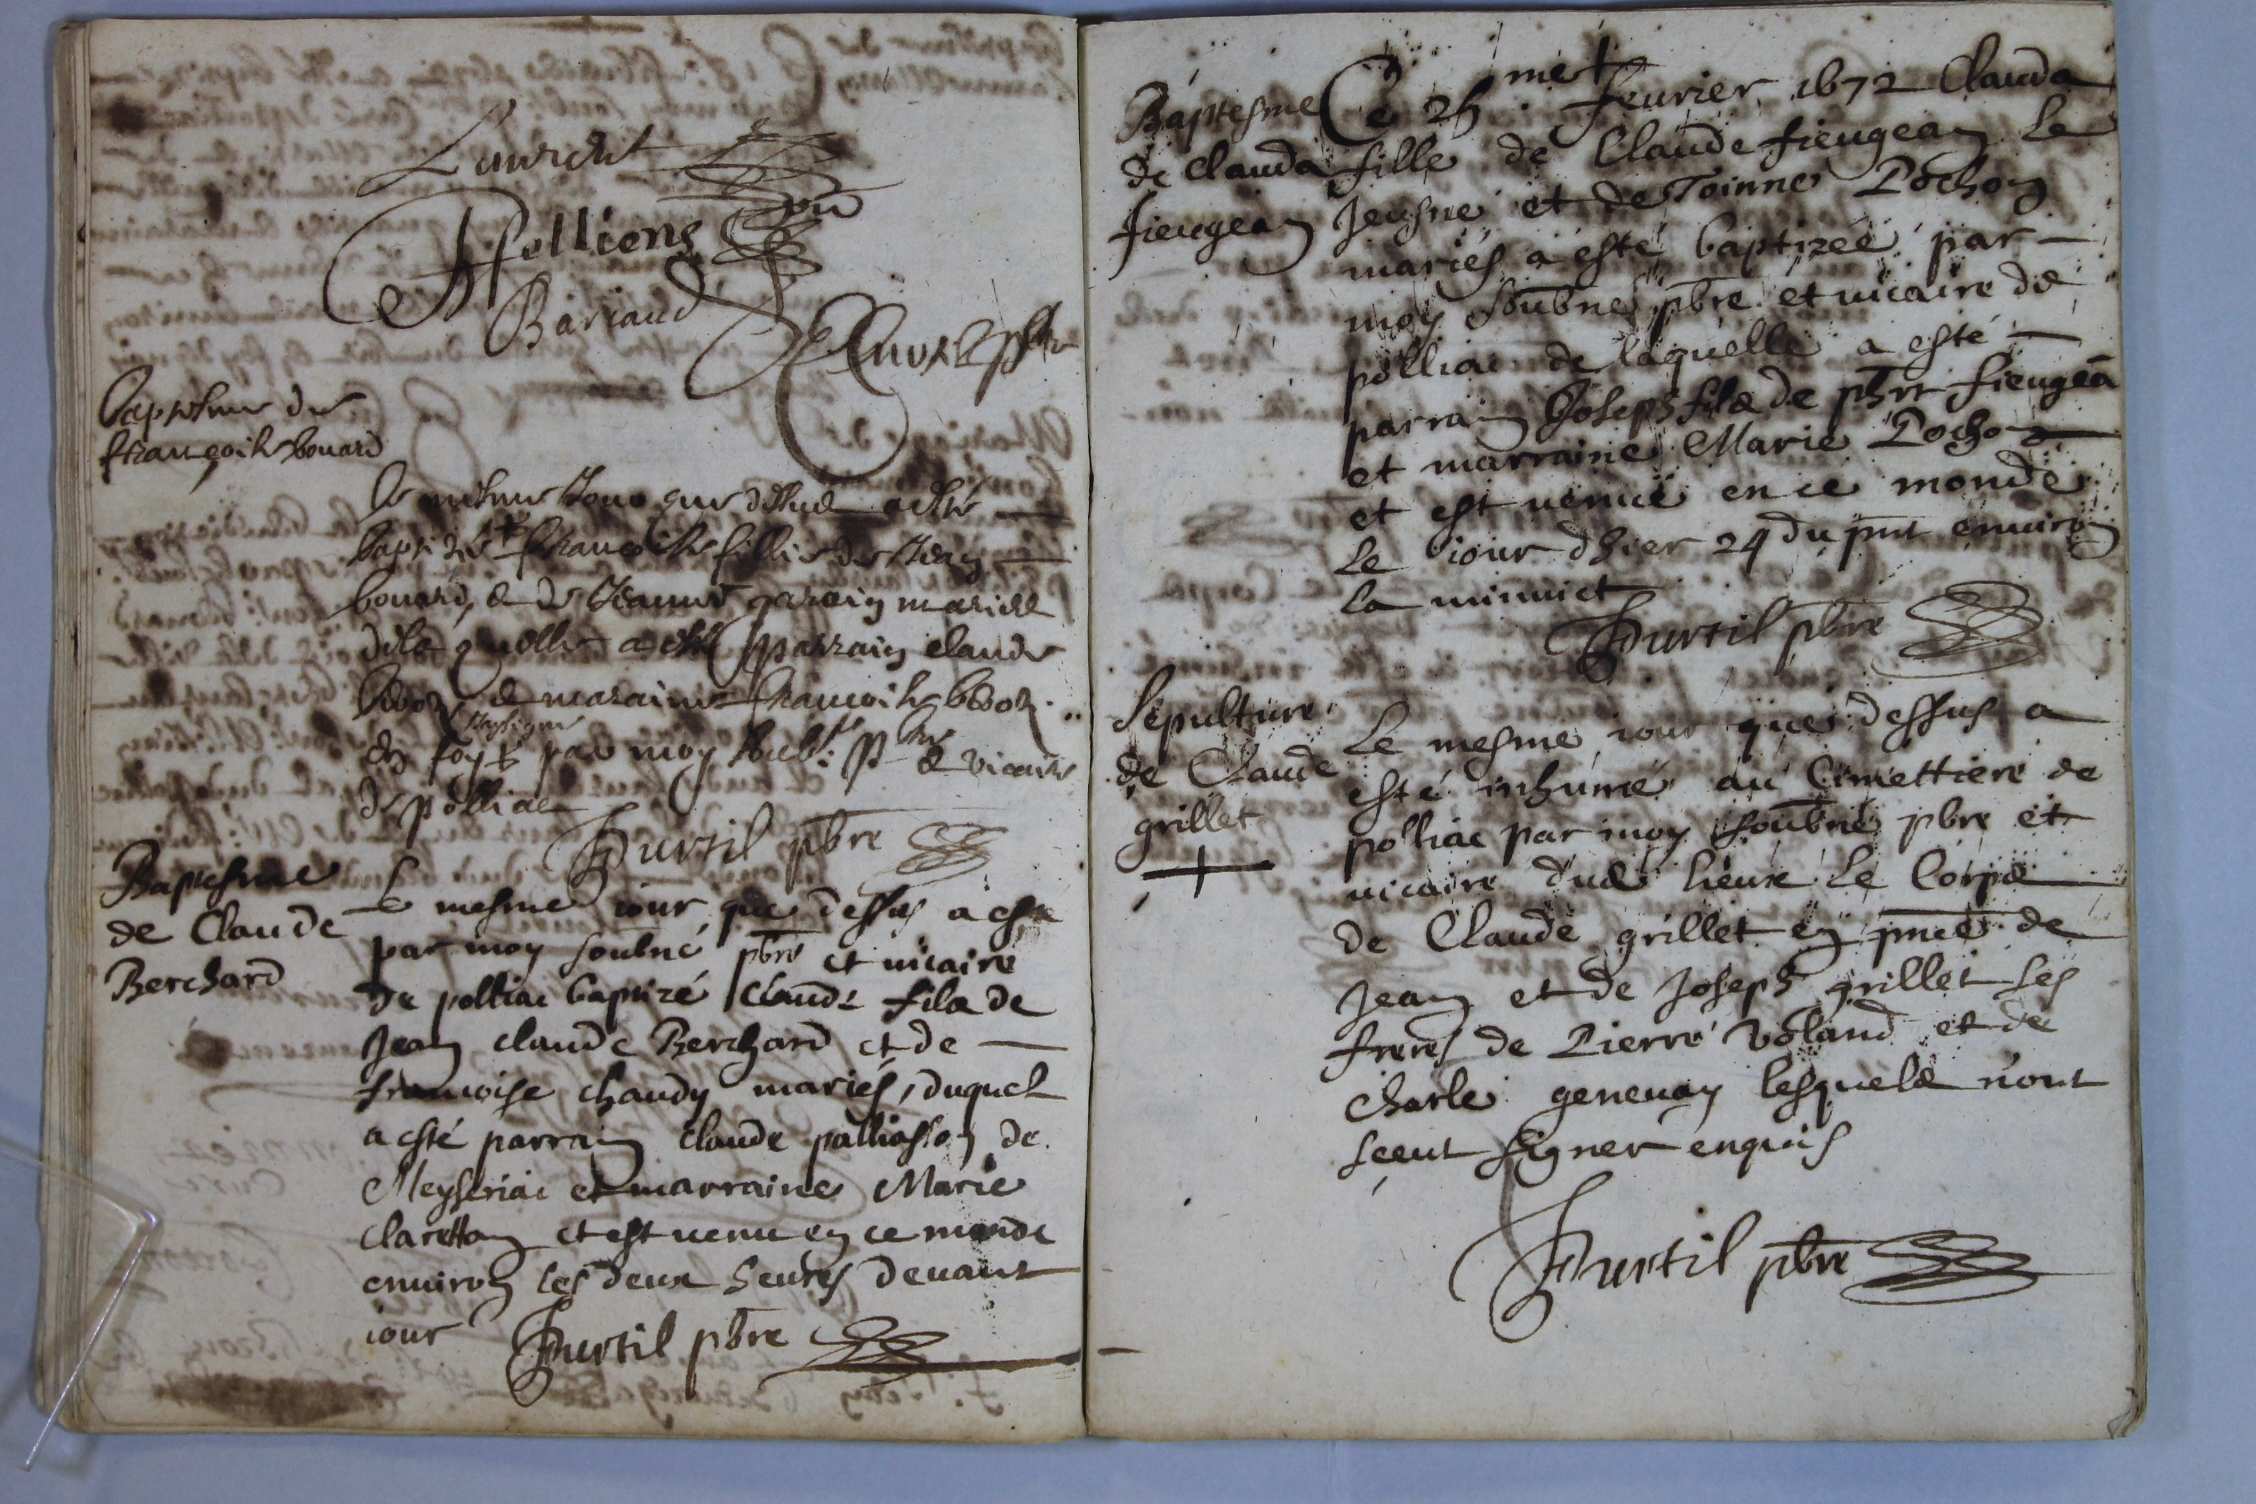 Laurent
Polliens
Bariaud
Baptesme de
françoise bouard
Le mesme Jour que dessus a esté
baptizée françoise fillie de Jean
bouard, & de Jeanne maries
de la quelle a esté parrain claude
& maraine francoise
en foy par moy soub.né p.bre & vicaire
de polliac
Burtil pbre
Baptesme
de Claude
Berchard
Le mesme iour que dessus a este
par moy soubné pbre et uicaire
de polliac baptizé Claude fils de
Jean claude Berchard et de
francoise chaudy mariés, duquel
a esté parrain claude palliasson de
Meyseriac et marraine Marie
claretton et est uenu en ce monde
enuiron les deux heures deuant
iour
Burtil pbre
Baptesme
de Clauda
fieugean
Ce 25.me feurier 1672 Clauda
fille de Claude fieugean le
Jeusne et de Toinne Pochon
mariés a esté baptizée par
moy soubné pbre et uicaire de
polliac de laquelle a esté
parrain Joseph fils de fieugeā
et marraine Marie Pochon
et est uenue en ce monde
le iour dhier 24 du pnt enuiron
la minuict
Burtil pbre
Sepulture
de Claude
grillet
Le mesme iour que dessus a
esté inhumé au Cimettiere de
polliac par moy soubné pbre et
uicaire dud lieux le Corps
de Claude grillet en pnce de
Jean et de Joseph grillet ses
freres de Pierre Voland et de
Charle geneuay lesquels n'ont
sceut signer enquis
Burtil pbre